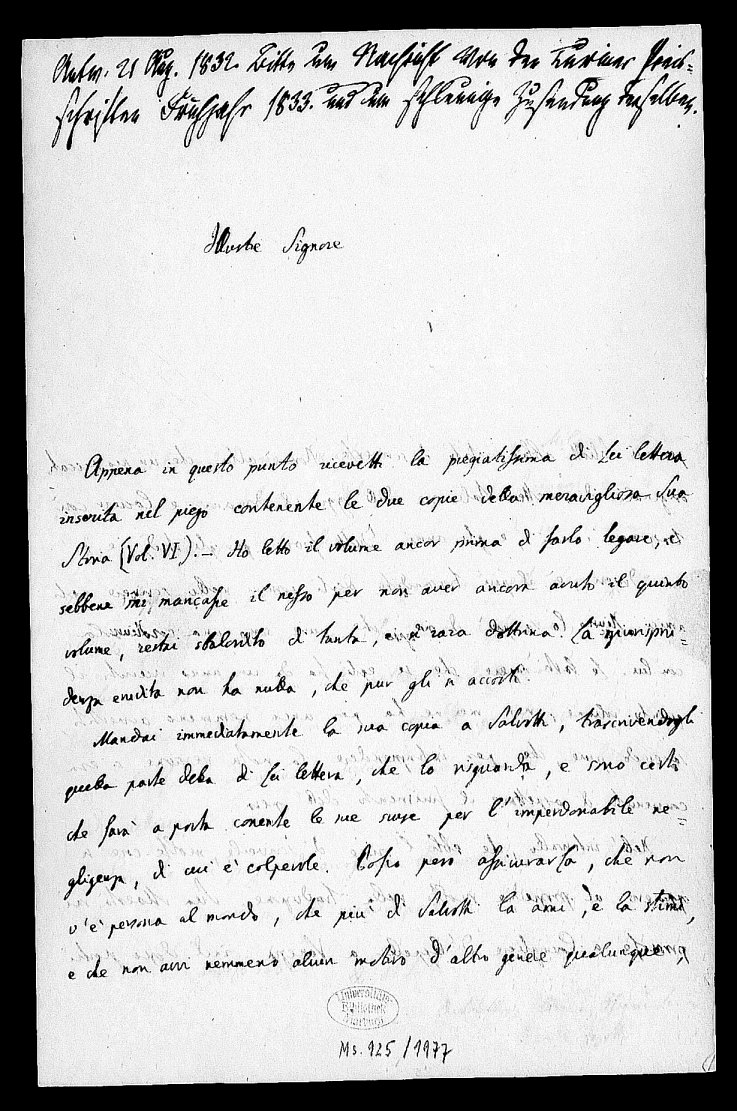 Antw. 21 Aug. 1832. Bitte um Nachricht von den Turiner Preis=
schriften Frühjahr 1833. und um schleunige Zusendung derselben.
Illustre Signore
Appena in questo punto ricevetti la pregiatissima di Lei lettera
inserita nel piego contenente le due copie della meravigliosa Sua
Storia (Vol. VI). – Ho letto il volume ancor prima di farlo legare, e
sebbene mi mancasse il nesso per non aver ancora avuto il quinto
volume, restai sbalordito di tanta, e sì rara dottrina. La giurispru=
denza erudita non ha nulla, che pur gli si accosti.
Mandai immediatamente la sua copia a Salvotti, trascrivendogli
quella parte della di Lei lettera, che lo risguarda, e sono certo
che farà a posta corrente le sue scuse per l'imperdonabile ne=
gligenza, di cui è colpevole. Posso però assicurarla, che non
v'è persona al mondo, che più di Salvotti la ami, e la stimi,
e che non avvi nemmeno alcun motivo d'altro genere qualunque,
Universitäts-
Bibliothek
Marburg
Ms. 925/1977